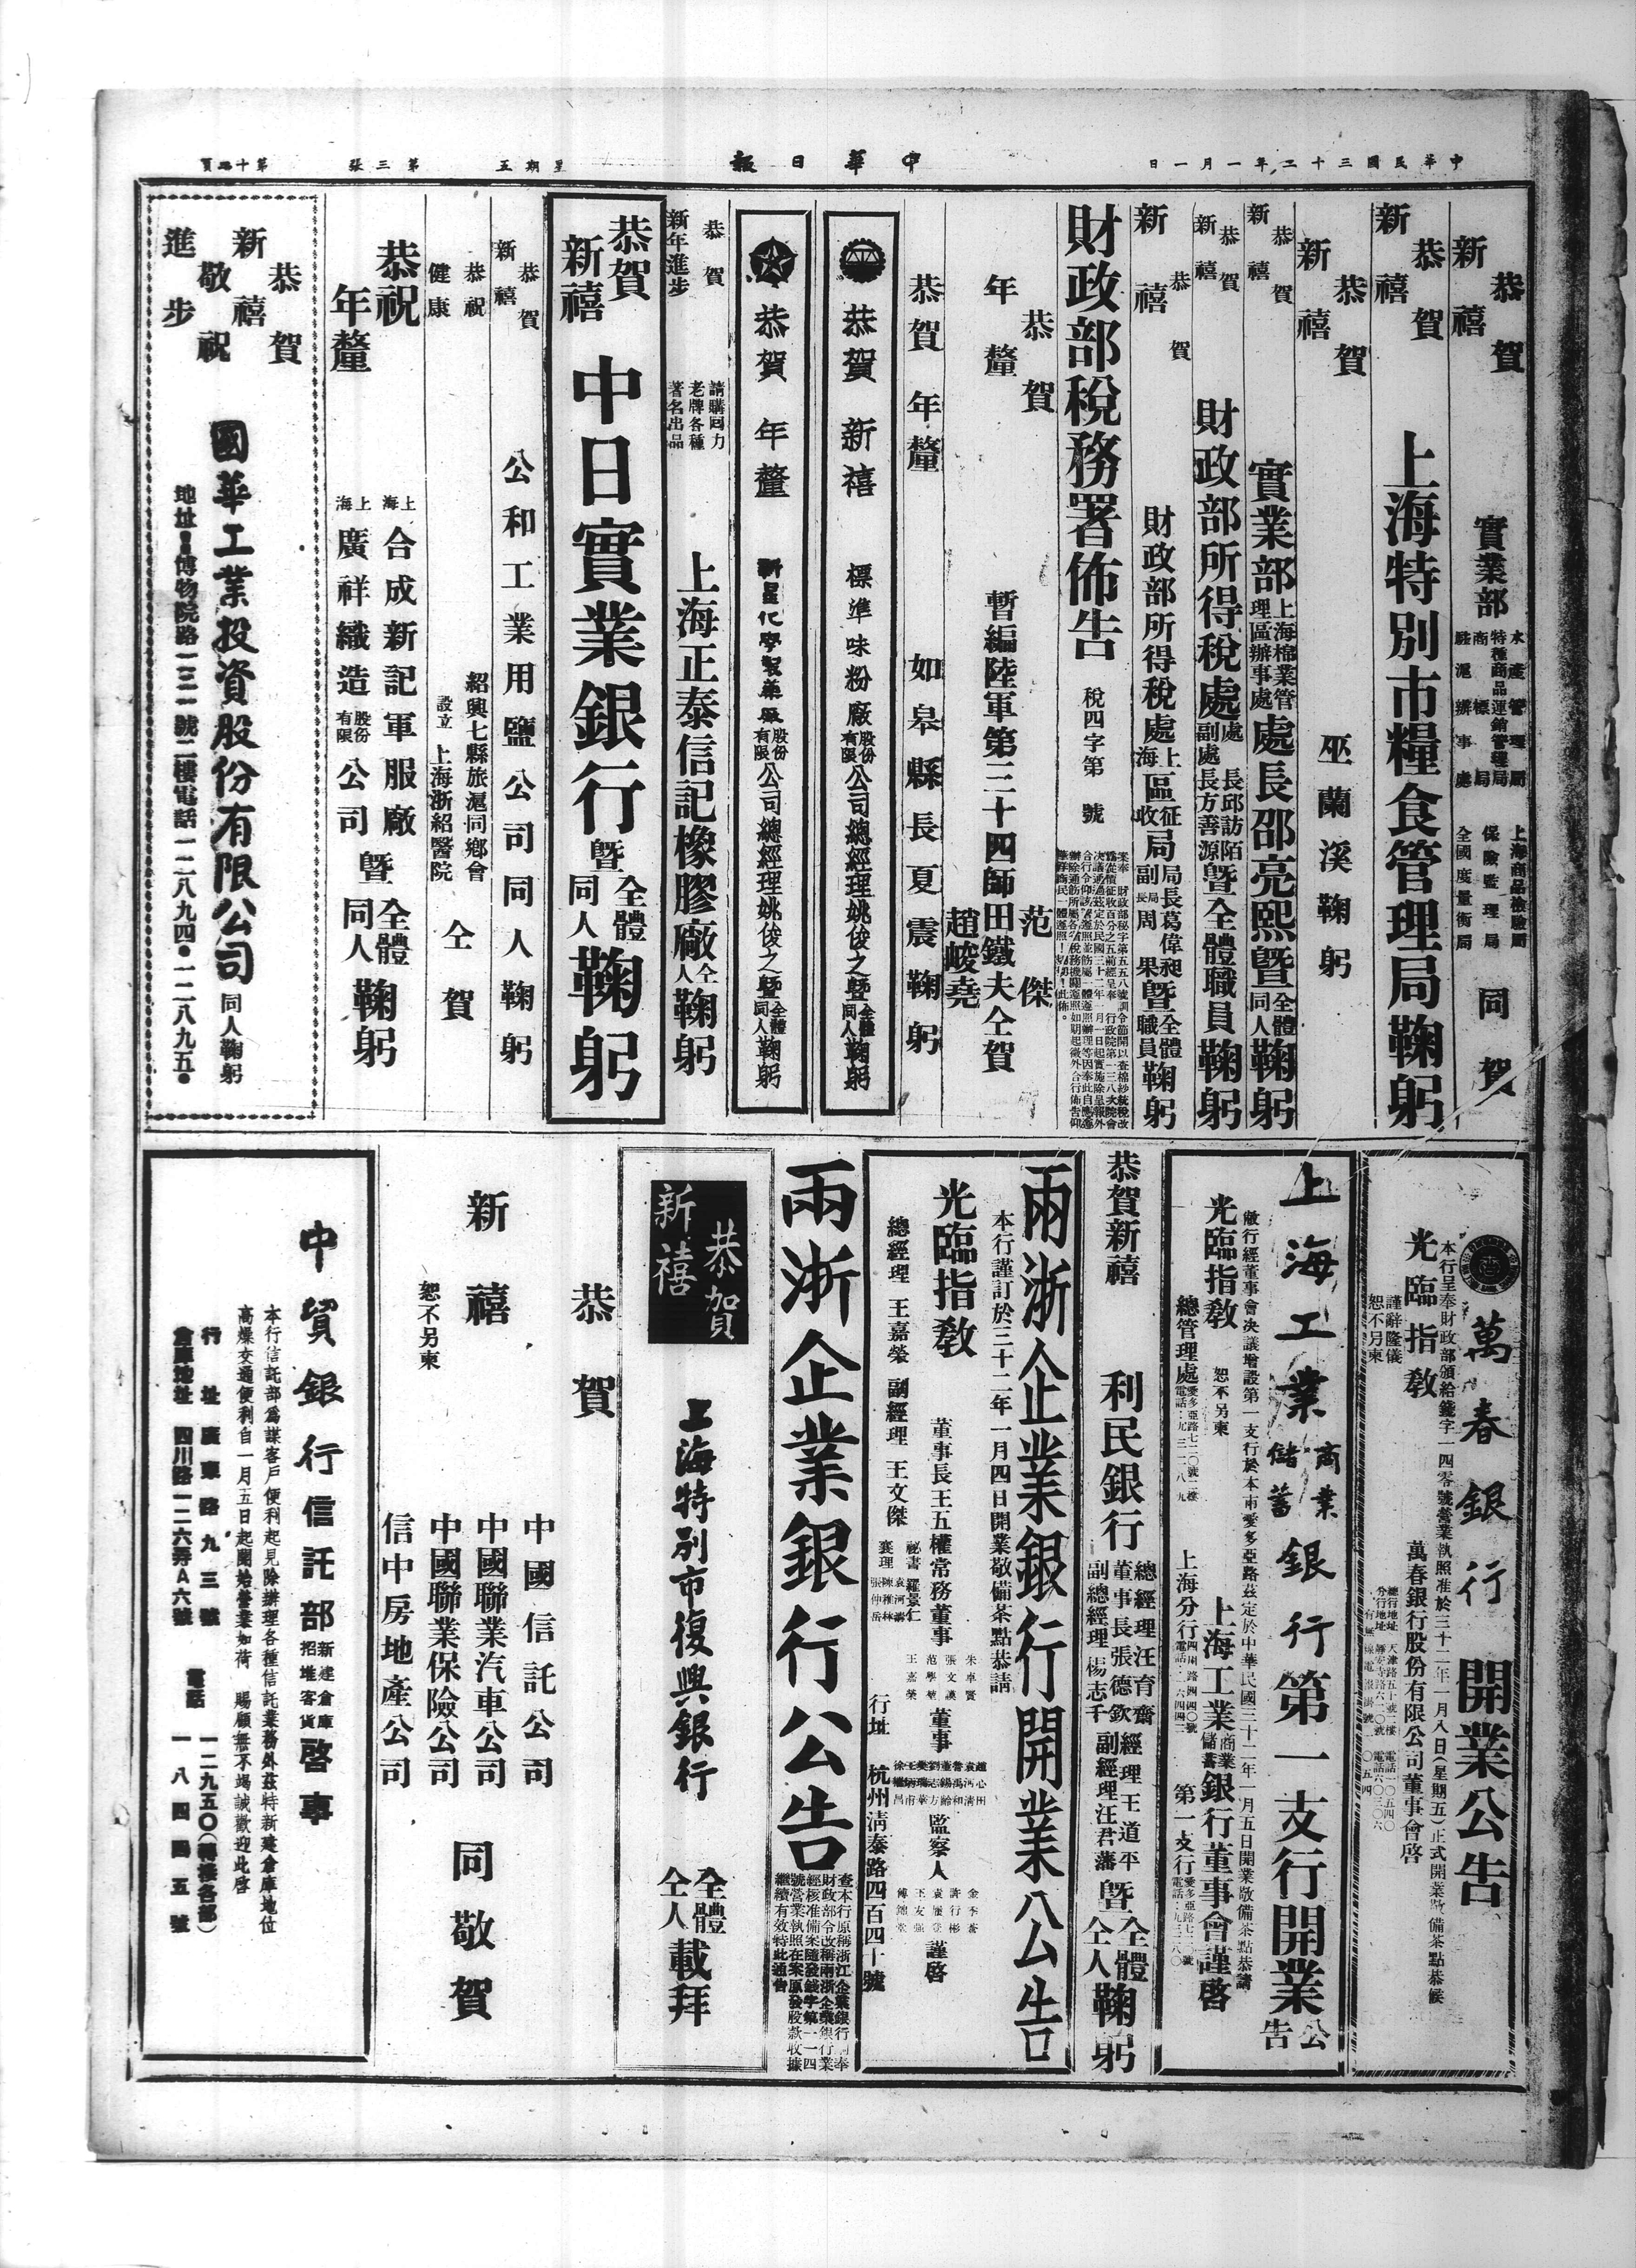 中華民國三十二年一月一日
中華日報
星期五
第三張
第十四頁
恭賀
新禧
實業部
水產管理局
特種商品運銷管理局
商標局
駐滬辦事處
上海商品檢驗局
保險監理局
全國度量衡局
同賀
恭賀
新禧
上海特別市糧食管理局鞠躬
恭賀
新禧
巫蘭溪鞠躬
恭賀
新禧
實業部
上海棉業管
理區辦事處
處長邵亮熙暨
全體
同人
鞠躬
恭賀
新禧
財政部所得稅處
處長邱訪陌
副處長方善源
暨全體職員鞠躬
恭賀
新禧
財政部所得稅處
上海
區
征收
局
局長葛偉昶
副局長周果
暨
全體
職員
鞠躬
財政部稅務署佈告
稅四字第 號
恭賀
年釐
暫編陸軍第三十四師田鐵夫仝賀
范傑
趙峻堯
恭賀年釐
如皋縣長夏震鞠躬
恭賀新禧
標準味粉廠
股份
有限
公司總經理姚俊之暨
全體
同人
鞠躬
恭賀年釐
新星化學製藥廠
股份
有限
公司總經理姚俊之暨
全體
同人
鞠躬
恭賀
新年進步
請購回力
老牌各種
著名出品
上海正泰信記橡膠廠
仝人
鞠躬
恭賀
新禧
中日實業銀行
暨
全體
同人
鞠躬
恭賀
新禧
公和工業用鹽公司同人鞠躬
恭祝
健康
紹興七縣旅滬同鄉會
設立
上海浙紹醫院
仝賀
恭祝
年釐
上海
合成新記軍服廠
上海
廣祥織造
股份
有限
公司
暨
全體
同人
鞠躬
恭賀
新禧
敬祝
進步
國華工業投資股份有限公司
同人鞠躬
地址:博物院路一三一號二樓電話一二八九四•一二八九五•
萬春銀行
開業公告
本行呈奉財政部頒給錢字一四零號營業執照准於三十二年一月八日(星期五)正式開業敬備茶點恭候
光臨指教
謹辭隆儀
恕不另柬
萬春銀行股份有限公司董事會啓
上海工業
商業
儲蓄
銀行第一支行開業
公告
敝行經董事會決議增設第一支行於本市愛多亞路茲定於中華民國三十二年一月五日開業敬備茶點恭請
光臨指教
恕不另柬
上海工業
商業
儲蓄
銀行董事會謹啓
總管理處
愛多亞路七二〇號二樓
電話:九三二八九
上海分行
四川路四四〇號
第一支行
愛多亞路七二〇號
恭賀新禧
利民銀行
總經理汪育齋
董事長張德欽
副總經理楊志千
經理王道平
副經理汪君藩
暨
全體
仝人
鞠躬
兩浙企業銀行開業公告
本行謹訂於三十二年一月四日開業敬備茶點恭請
光臨指教
董事長王五權常務董事
朱卓賢
張文漢
范學敏
王嘉榮
董事
監察人
謹啓
總經理 王嘉榮 副經理 王文傑
祕書 羅景仁
襄理
行址 杭州清泰路四百四十號
兩浙企業銀行公告
查本行原稱浙江企業銀行前奉
財政部令改稱兩浙企業銀行業
經核准備案隨發錢字第一一四
號營業執照在案原發股款收據
繼續有效特此通告
恭賀
新禧
上海特別市復興銀行
全體
仝人
載拜
恭賀
新禧
恕不另柬
中國信託公司
中國聯業汽車公司
中國聯業保險公司
信中房地產公司
同敬賀
中貿銀行信託部
新建倉庫
招堆客貨
啓事
本行信託部爲謀客戶便利起見除辦理各種信託業務外茲特新建倉庫地位
高燥交通便利自一月五日起開始營業如荷 賜顧無不竭誠歡迎此啓
行址 廣東路九三號 電話 一二九五〇(轉接各部)
倉庫地址 四川路一二六弄A六號 一八四四五號